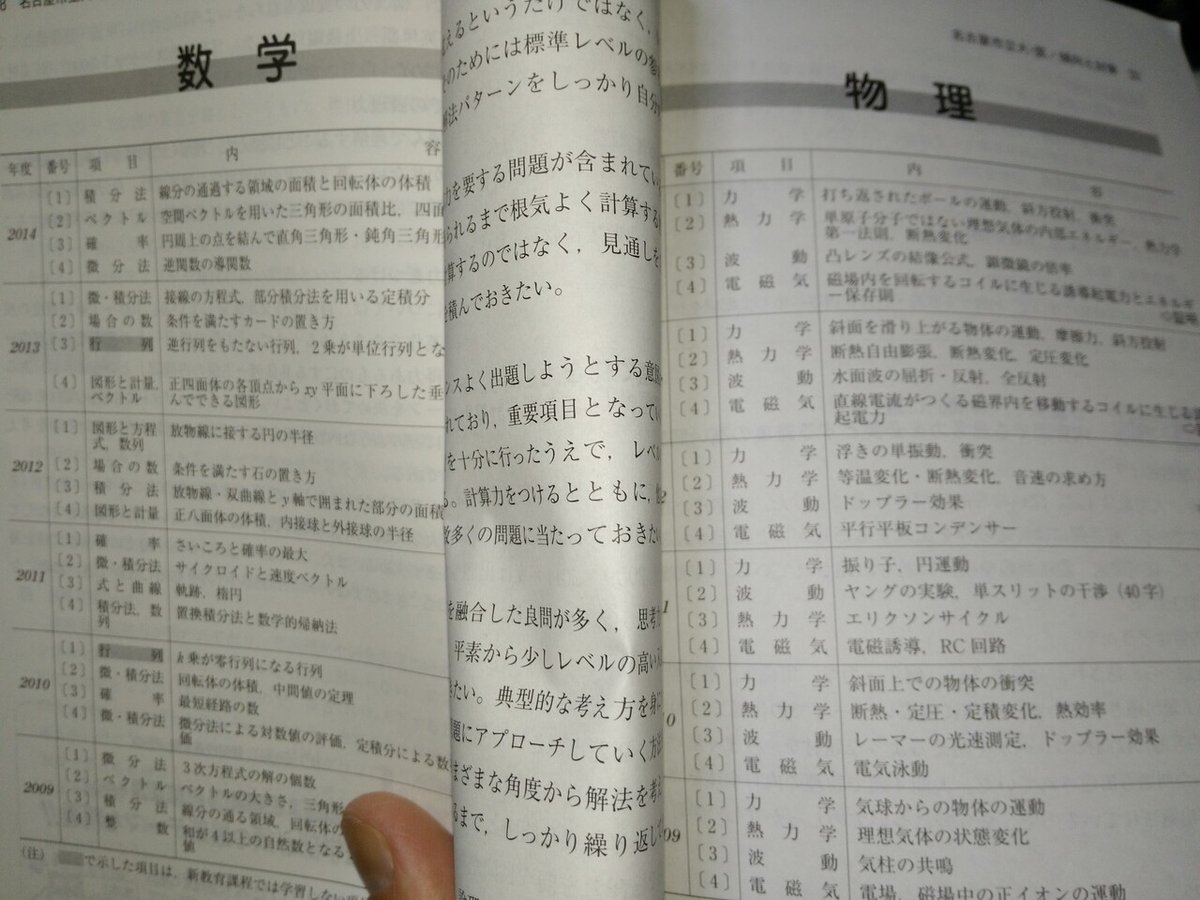 数学
年度 番号 項目 内容
2014
〔1〕 積分法 線分の通過する領域の面積と回転体の体積
〔2〕 ベクトル 空間ベクトルを用いた三角形の面積比，四面
〔3〕 確率 円周上の点を結んで直角三角形・鈍角三角形
〔4〕 微分法 逆関数の導関数
2013
〔1〕 微・積分法 接線の方程式，部分積分法を用いる定積分
〔2〕 場合の数 条件を満たすカードの置き方
〔3〕 行列 逆行列をもたない行列，2乗が単位行列とな
〔4〕 図形と計量，ベクトル 正四面体の各頂点からxy平面に下ろした垂
んでできる図形
2012
〔1〕 図形と方程式，数列 放物線に接する円の半径
〔2〕 場合の数 条件を満たす石の置き方
〔3〕 積分法 放物線・双曲線とy軸で囲まれた部分の面積
〔4〕 図形と計量 正八面体の体積，内接球と外接球の半径
2011
〔1〕 確率 さいころと確率の最大
〔2〕 微・積分法 サイクロイドと速度ベクトル
〔3〕 式と曲線 軌跡，楕円
〔4〕 積分法，数列 置換積分法と数学的帰納法
2010
〔1〕 行列 k乗が零行列になる行列
〔2〕 微・積分法 回転体の体積，中間値の定理
〔3〕 確率 最短経路の数
〔4〕 微・積分法 微分法による対数値の評価，定積分による数
値
2009
〔1〕 微分法 3次方程式の解の個数
〔2〕 ベクトル ベクトルの大きさ，三角形
〔3〕 積分法 線分の通る領域，回転体の
〔4〕 整数 和が4以上の自然数となる
値
（注） で示した項目は，新教育課程では学習しない
えるというだけではなく，
のためには標準レベルの参
解法パターンをしっかり自分
力を要する問題が含まれてい
られるまで根気よく計算する
算するのではなく，見通しを
積んでおきたい。
ンスよく出題しようとする意
れており，重要項目となってい
を十分に行ったうえで，レベ
る。計算力をつけるとともに，
数多くの問題に当たっておきたい
を融合した良問が多く，思考
平素から少しレベルの高い
きたい。典型的な考え方を身
題にアプローチしていく方
まざまな角度から解法を考
るまで，しっかり繰り返し
物理
番号 項目 内容
〔1〕 力学 打ち返されたボールの運動，斜方投射，衝突
〔2〕 熱力学 単原子分子ではない理想気体の内部エネルギー，熱力学
第一法則，断熱変化
〔3〕 波動 凸レンズの結像公式，顕微鏡の倍率
〔4〕 電磁気 磁場内を回転するコイルに生じる誘導起電力とエネルギ
ー保存則
〔1〕 力学 斜面を滑り上がる物体の運動，摩擦力，斜方投射
〔2〕 熱力学 断熱自由膨張，断熱変化，定圧変化
〔3〕 波動 水面波の屈折・反射，全反射
〔4〕 電磁気 直線電流がつくる磁界内を移動するコイルに生じる
起電力
2
〔1〕 力学 浮きの単振動，衝突
〔2〕 熱力学 等温変化・断熱変化，音速の求め方
〔3〕 波動 ドップラー効果
〔4〕 電磁気 平行平板コンデンサー
1
〔1〕 力学 振り子，円運動
〔2〕 波動 ヤングの実験，単スリットの干渉（40字）
〔3〕 熱力学 エリクソンサイクル
〔4〕 電磁気 電磁誘導，RC回路
0
〔1〕 力学 斜面上での物体の衝突
〔2〕 熱力学 断熱・定圧・定積変化，熱効率
〔3〕 波動 レーマーの光速測定，ドップラー効果
〔4〕 電磁気 電気泳動
09
〔1〕 力学 気球からの物体の運動
〔2〕 熱力学 理想気体の状態変化
〔3〕 波動 気柱の共鳴
〔4〕 電磁気 電場，磁場中の正イオンの運動